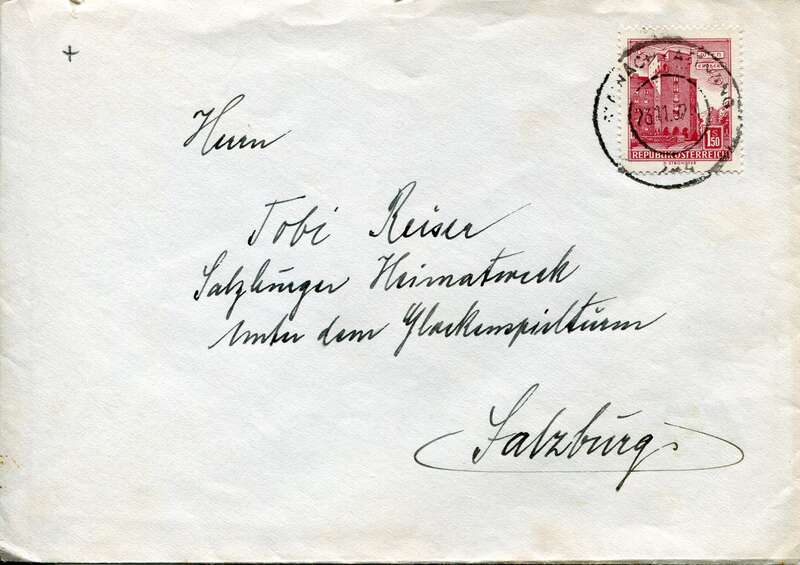 Herrn
Tobi Reiser
Salzburger Heimatwerk
Unter dem Glockenspielturm
Salzburg
1.50
REPUBLIK ÖSTERREICH